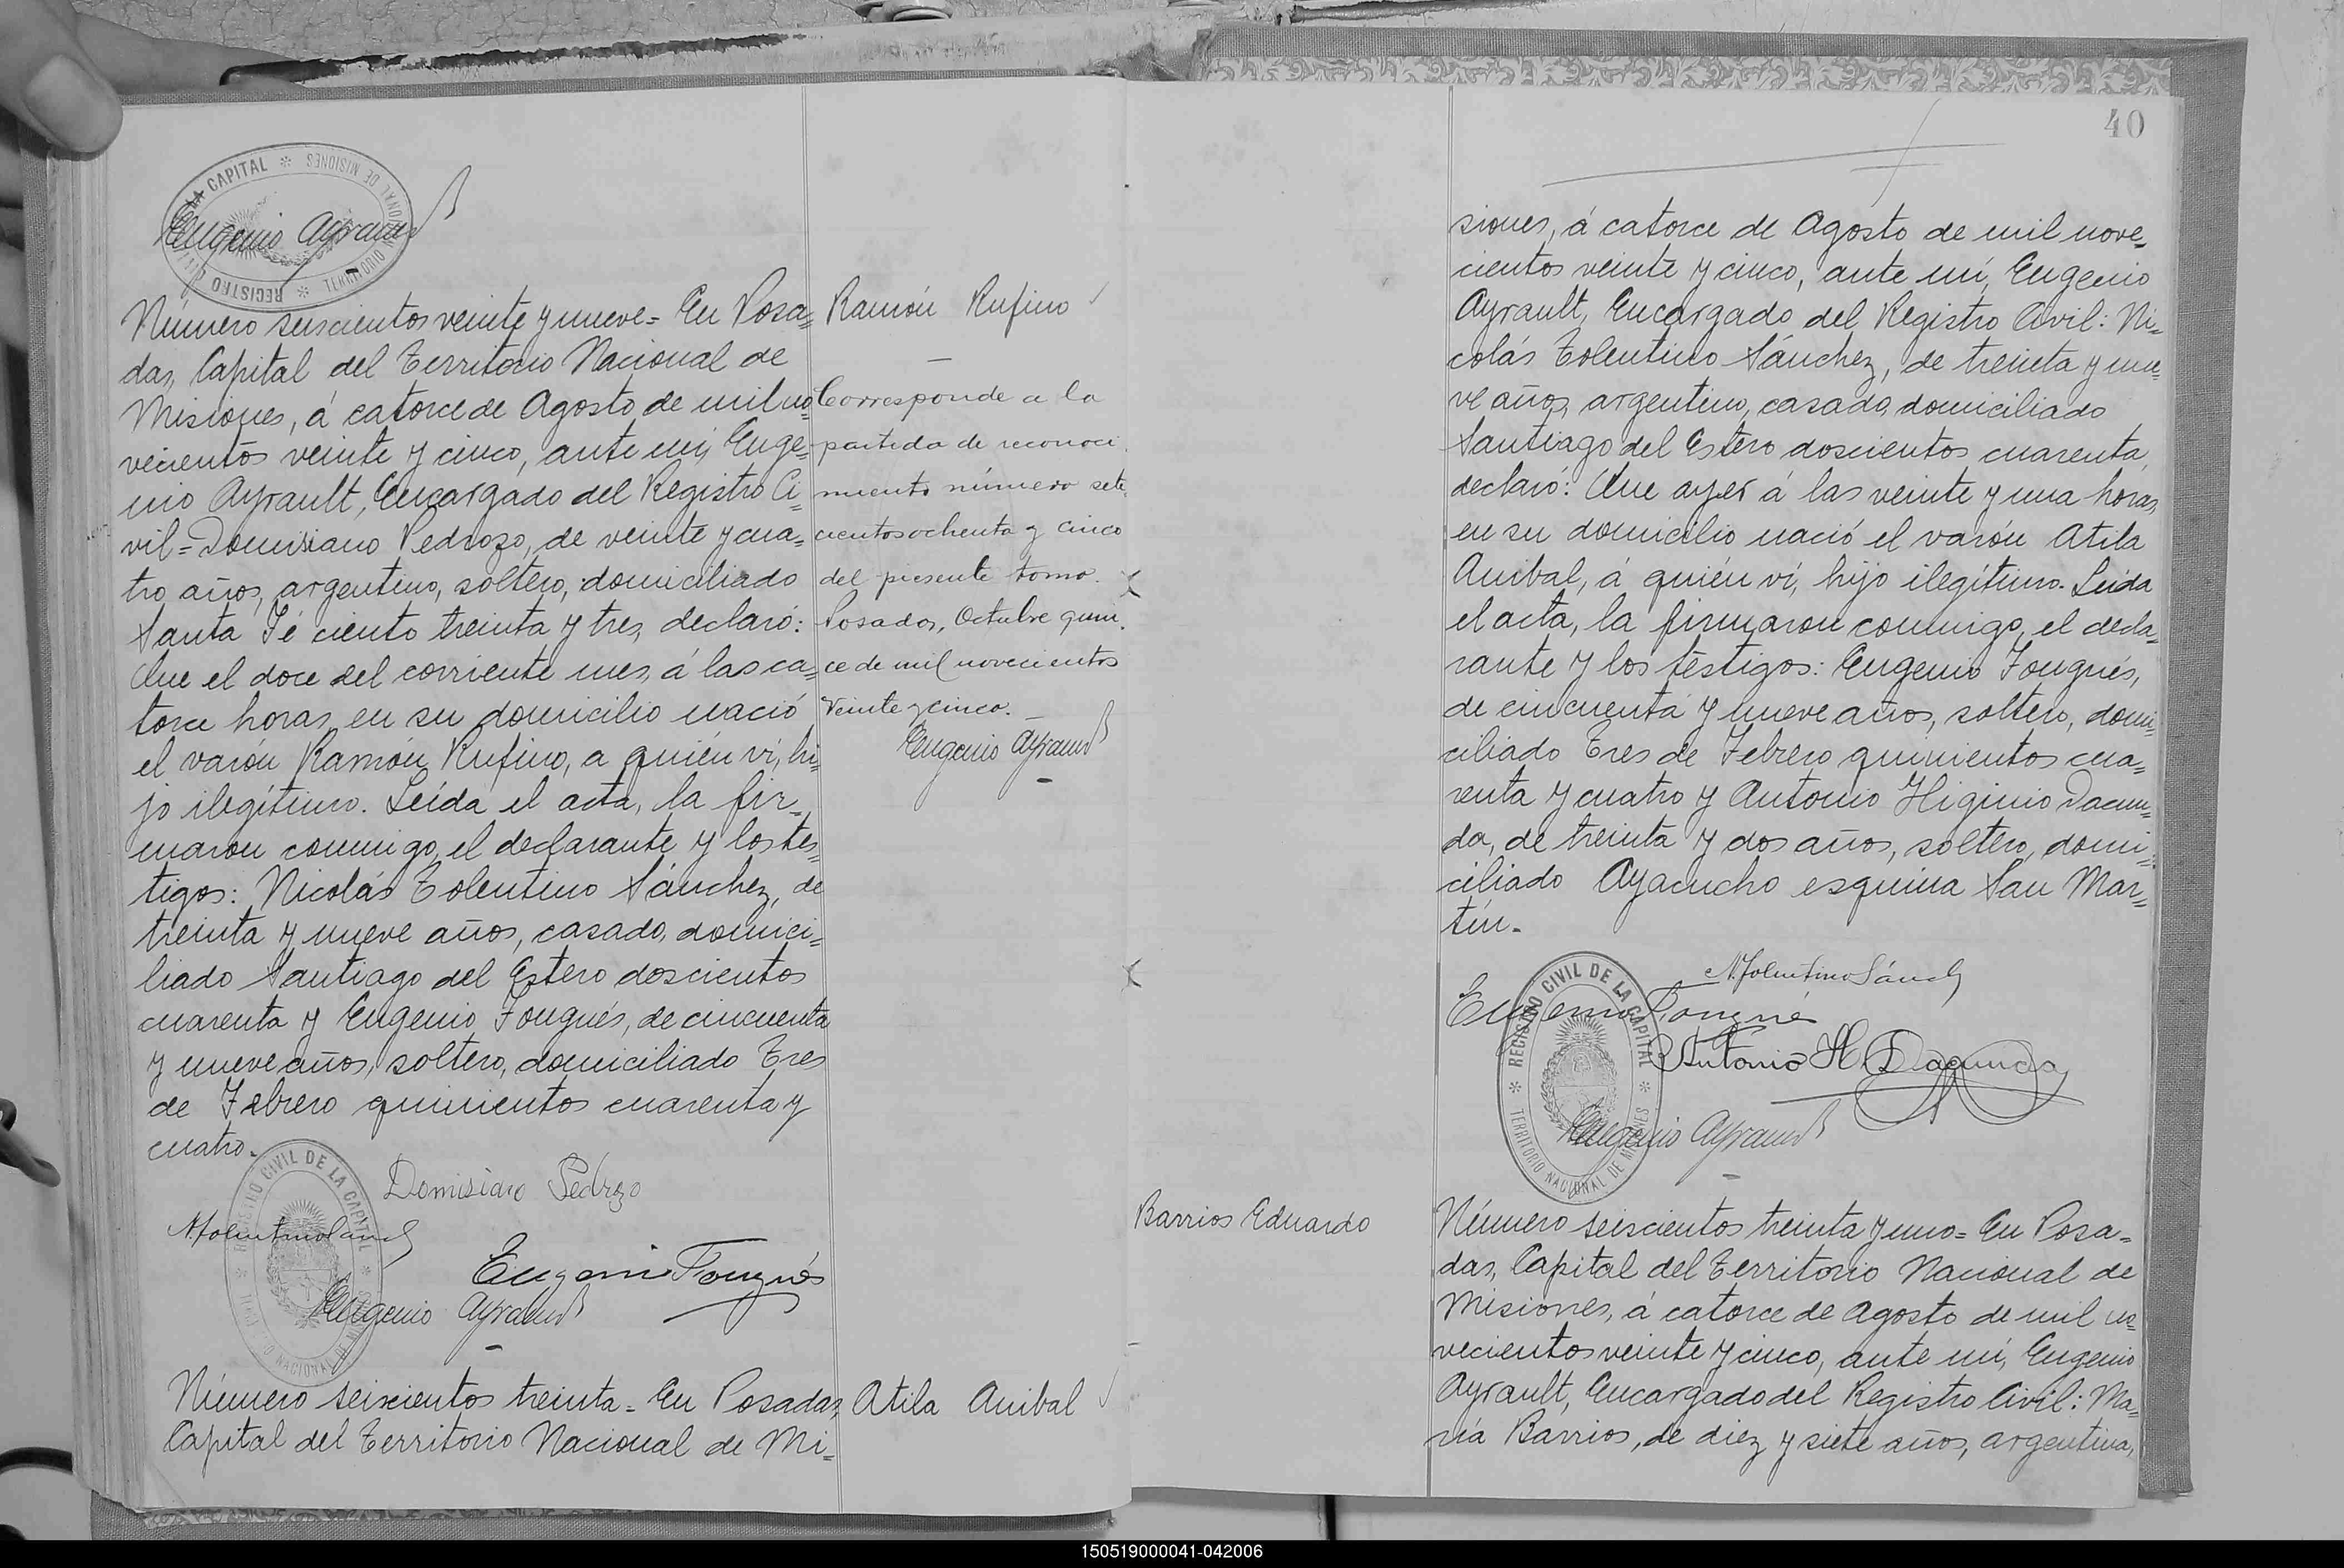 REGISTRO CIVIL DE LA CAPITAL * TERRITORIO NACIONAL DE MISIONES *
Eugenio Ayrault
Número seiscientos veinte y nueve = En Posa=
das, Capital del Territorio Nacional de
Misiones, á catorce de Agosto de mil no=
vecientos veinte y cinco, ante mí, Euge=
nio Ayrault, Encargado del Registro Ci=
vil = Domisiano Pedrozo, de veinte y cua=
tro años, argentino, soltero, domiciliado
Santa Fé ciento treinta y tres, declaró:
Que el doce del corriente mes, á las ca=
torce horas, en su domicilio nació
el varón Ramón Rufino, a quién ví, hi=
jo ilegítimo. Leída el acta, la fir=
maron conmigo, el declarante y los tes=
tigos: Nicolás Tolentino Sánchez, de
treinta y nueve años, casado, domici=
liado Santiago del Estero doscientos
cuarenta y Eugenio Fougués, de cincuenta
y nueve años, soltero, domiciliado Tres
de Febrero quinientos cuarenta y
cuatro.
Domisiano Pedrozo
N. Tolentino Sánch
Eugenio Fougués
Eugenio Ayrault
REGISTRO CIVIL DE LA CAPITAL * TERRITORIO NACIONAL DE MISIONES *
Número seiscientos treinta = En Posadas,
Capital del Territorio Nacional de Mi=
Ramón Rufino
Corresponde a la
partida de reconoci
miento número sete
cientos ochenta y cinco
del presente tomo.
Posadas, Octubre quin
ce de mil novecientos
veinte y cinco.
Eugenio Ayrault
Atila Anibal
40
siones, á catorce de Agosto de mil nove=
cientos veinte y cinco, ante mí, Eugenio
Ayrault, Encargado del Registro Civil: Ni=
colás Tolentino Sánchez, de treinta y nue=
ve años, argentino, casado, domiciliado
Santiago del Estero doscientos cuarenta,
declaró: Que ayer á las veinte y una horas,
en su domicilio nació el varón Atila
Anibal, á quién ví, hijo ilegítimo. Leída
el acta, la firmaron conmigo, el decla=
rante y los testigos: Eugenio Fougués,
de cincuenta y nueve años, soltero, domi=
ciliado Tres de Febrero quinientos cua=
renta y cuatro y Antonio Higinio Dacun=
da, de treinta y dos años, soltero, domi=
ciliado Ayacucho esquina San Mar=
tín.
N. Tolentino Sánch
Eugenio Fougué
Antonio H. Dacunda
Eugenio Ayrault
REGISTRO CIVIL DE LA CAPITAL * TERRITORIO NACIONAL DE MISIONES *
Barrios Eduardo
Número seiscientos treinta y uno = En Posa=
das, Capital del Territorio Nacional de
Misiones, á catorce de Agosto de mil no=
vecientos veinte y cinco, ante mí, Eugenio
Ayrault, Encargado del Registro Civil: Ma=
ría Barrios, de diez y siete años, argentina,
150519000041-042006